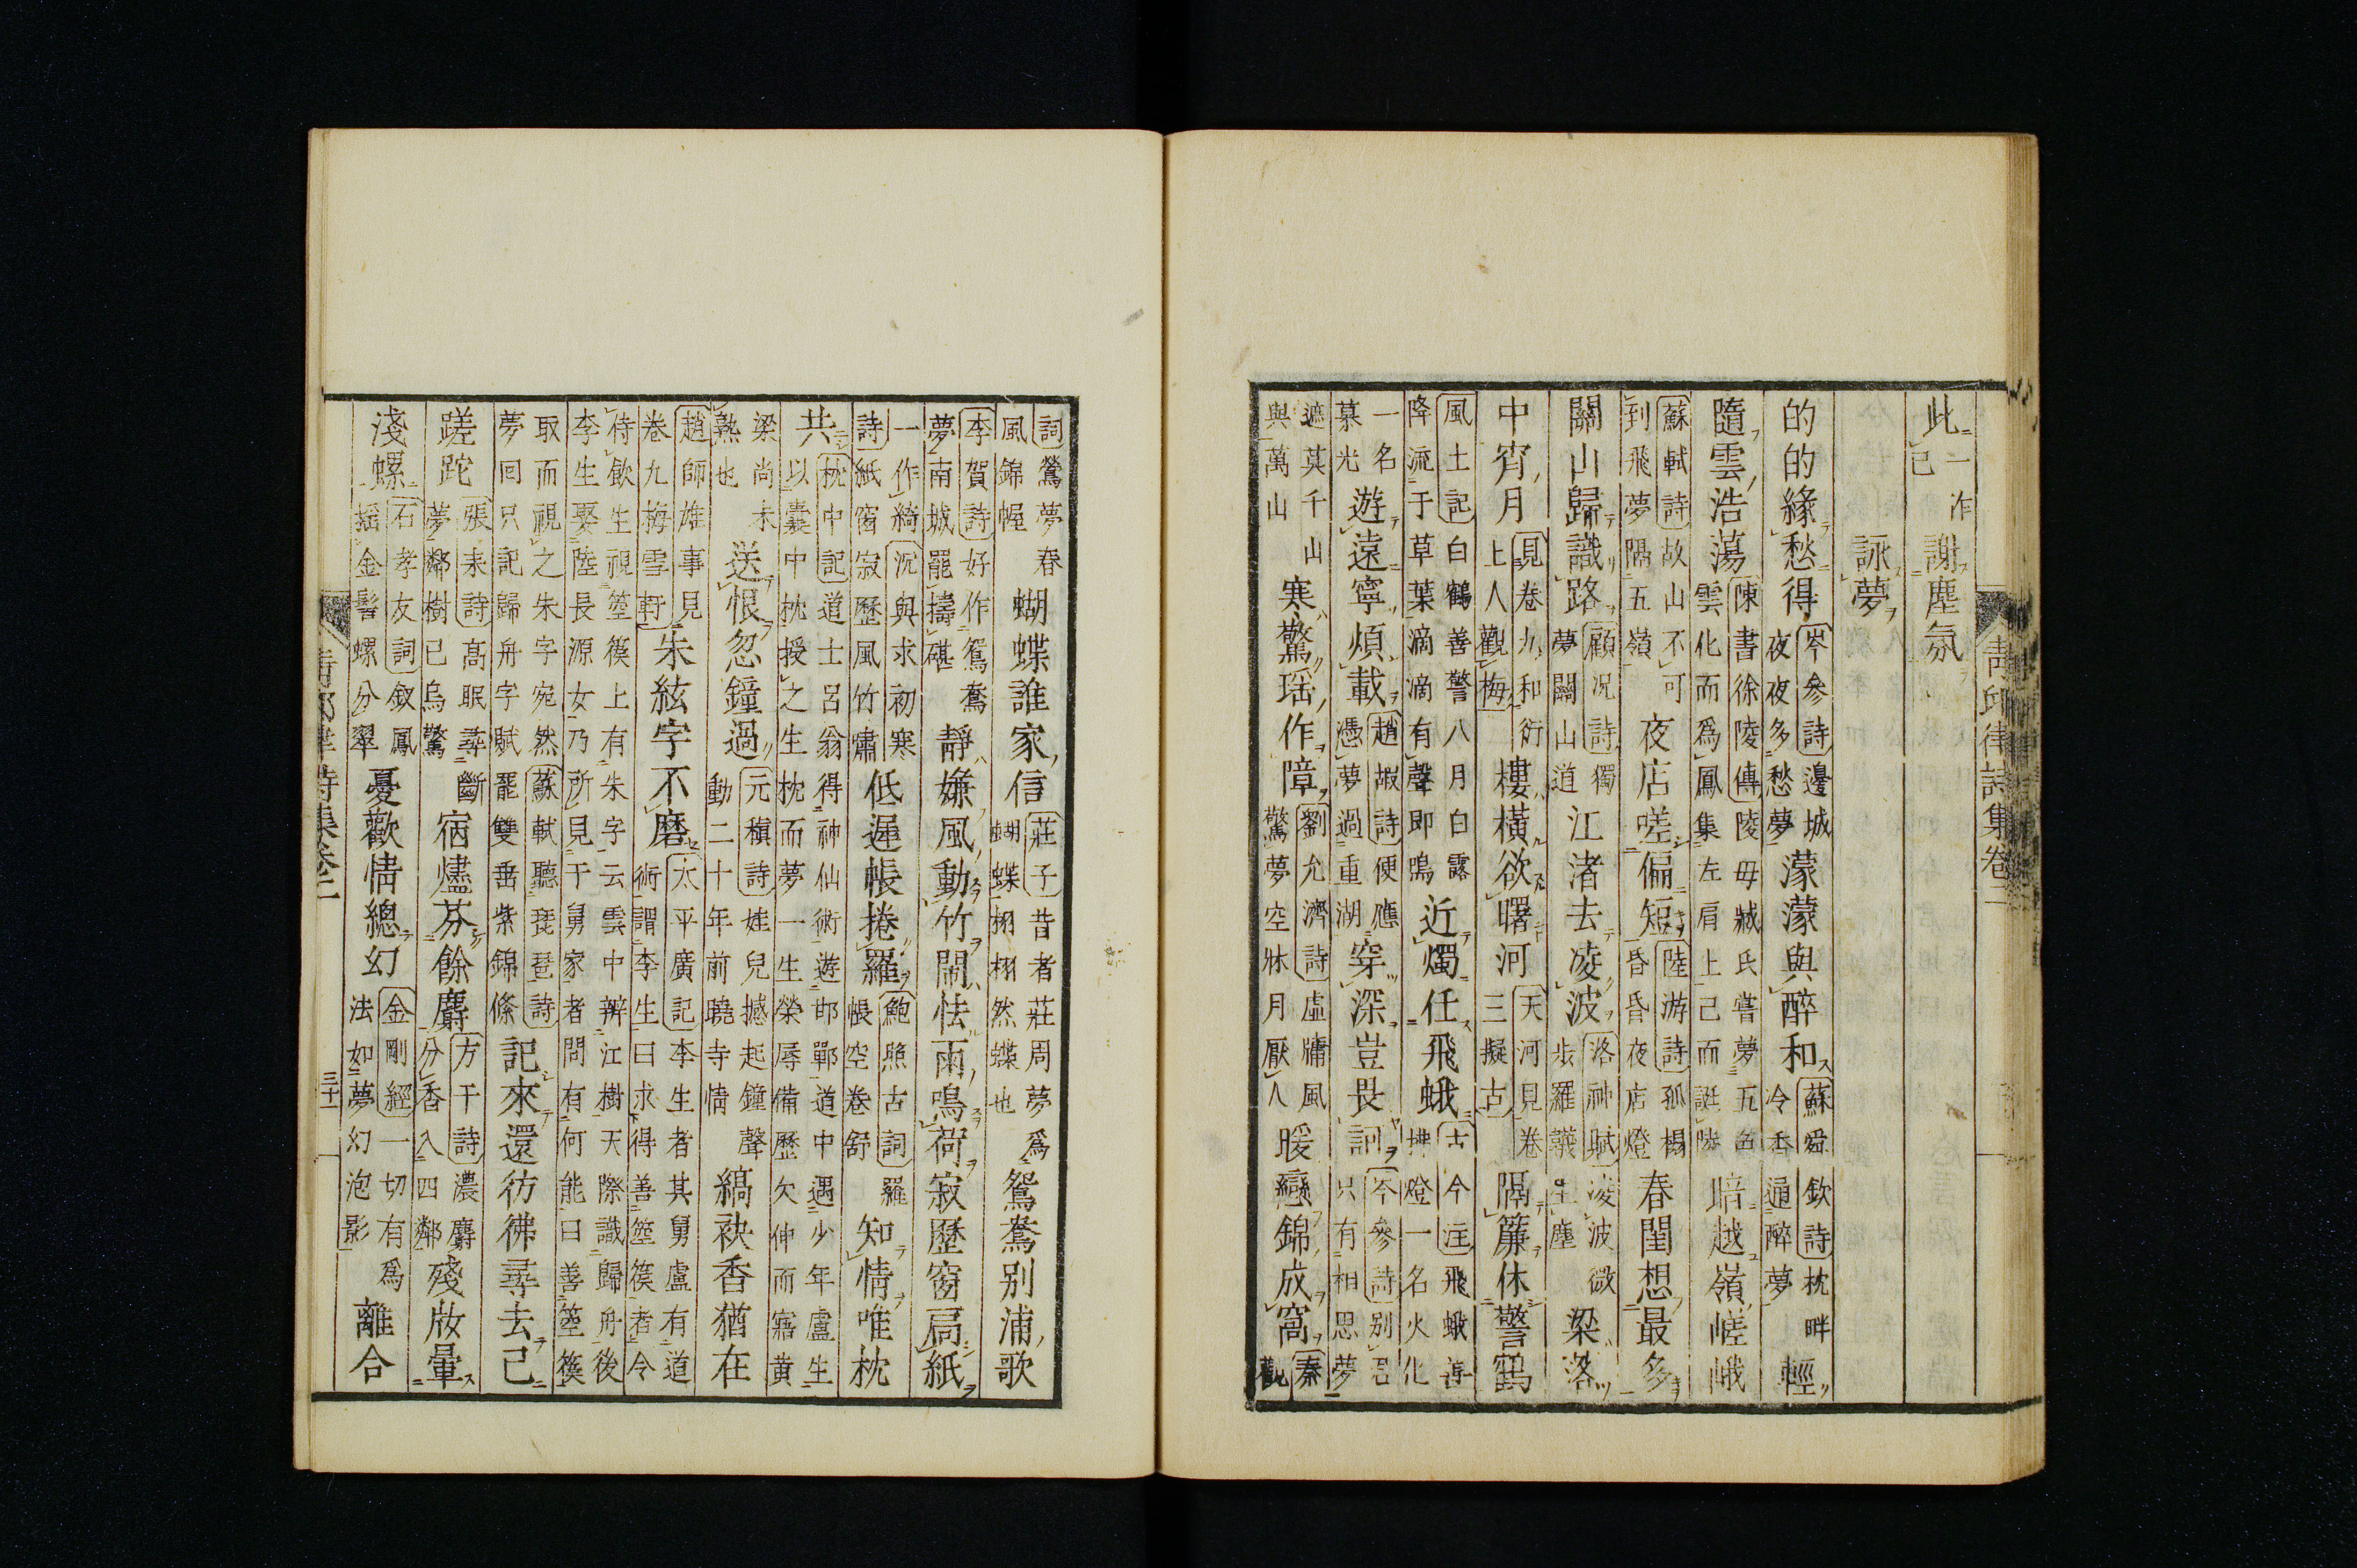 此一作已謝塵氛
詠夢
的的緣愁得岑參詩邊城夜夜多愁夢濛濛與醉和蘇舜欽詩枕畔冷香通醉夢輕
隨雲浩蕩陳書徐陵傳陵母臧氏嘗夢五色雲化而爲鳳集左肩上已而誕陵暗越嶺嵯峨
蘇軾詩故山不可到飛夢隔五嶺夜店嗟偏短陸游詩孤榻昏昏夜店燈春閨想最多
關山歸識路顧況詩獨夢關山道江渚去凌波洛神賦凌波微步羅襪生塵梁落
中宵月見卷九和衍上人觀梅樓橫欲曙河天河見卷三擬古隔簾休警鶴
風土記白鶴善警八月白露降流于草葉滴滴有聲即鳴近燭任飛蛾古今注飛蛾善拂燈一名火化
一名慕光遊遠寧煩載趙嘏詩便應憑夢過重湖穿深豈畏訶岑參詩別君只有相思夢
遮莫千山與萬山寒驚瑶作障劉允濟詩虛牖風驚夢空牀月厭人暖戀錦成窩秦觀
青邱律詩集卷二
詞鶯夢春風錦幄蝴蝶誰家信莊子昔者莊周夢爲蝴蝶栩栩然蝶也鴛鴦別浦歌
李賀詩好作鴛鴦夢南城罷擣碪靜嫌風動竹閙怯雨鳴荷寂歷窗扃紙
一作綺沉與求初寒詩紙窗寂歷風竹嘯低遲帳捲羅鮑照古詞羅帳空卷舒知情唯枕
共枕中記道士呂翁得神仙術遊邯鄲道中遇少年盧生以囊中枕授之生枕而夢一生榮辱備歷欠伸而寤黄
梁尚未熟也送恨忽鐘過元稹詩娃兒撼起鐘聲動二十年前曉寺情縞袂香猶在
趙師雄事見卷九梅雪軒朱絃字不磨太平廣記李生者其舅盧有道術謂李生曰求得善箜篌者令
侍飲生視箜篌上有朱字云雲中辨江樹天際識歸舟後李生娶陸長源女乃所見于舅家者問有何能曰善箜篌
取而視之朱字宛然夢回只記歸舟字賦罷雙垂紫錦絛蘇軾聽琵琶詩記來還彷彿尋去已
蹉跎張耒詩高眠尋斷夢鄰樹已烏驚宿燼芬餘麝方干詩濃麝分香入四鄰殘妝暈
淺螺石孝友詞釵鳳搖金髻螺分翠憂歡情總幻金剛經一切有爲法如夢幻泡影離合
青邱律詩集卷二
三十一